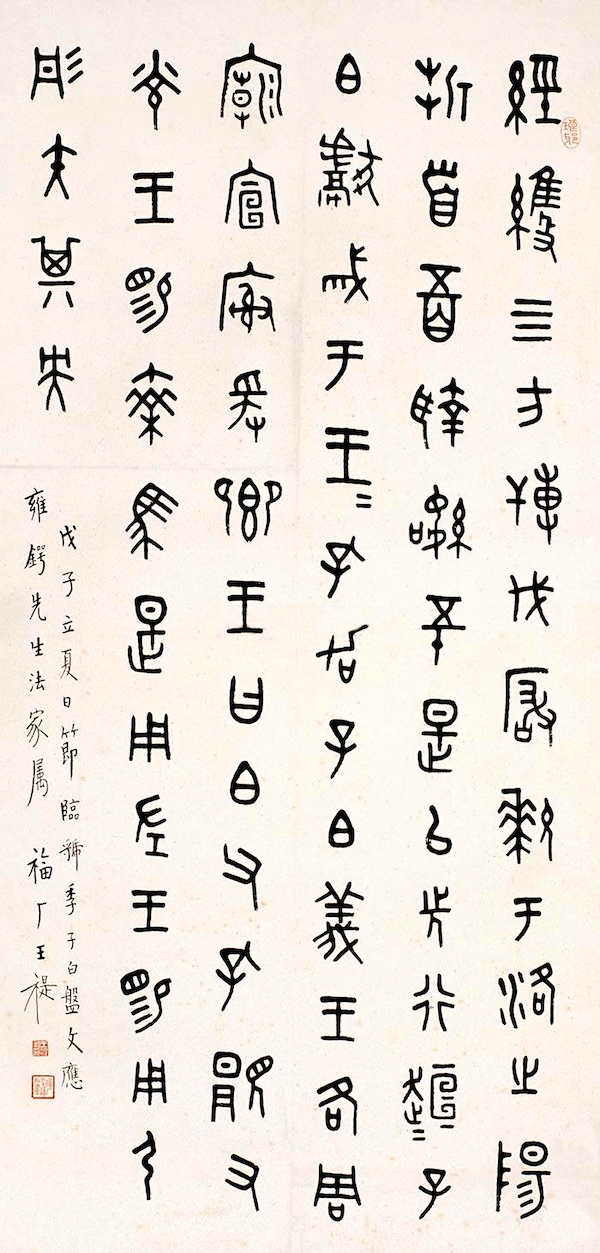 經維亖方搏伐厰𤞤于洛之陽
折首五百執訊五十是以先行趄=子
白獻戒于王=孔加子白義王各周
廟宣廟爰鄉王曰白父孔䚄又
光王賜乘馬是用左王賜用弓
彤矢其央
戊子立夏日節臨虢季子白盤文應
雍鍔先生法家属 福厂王禔